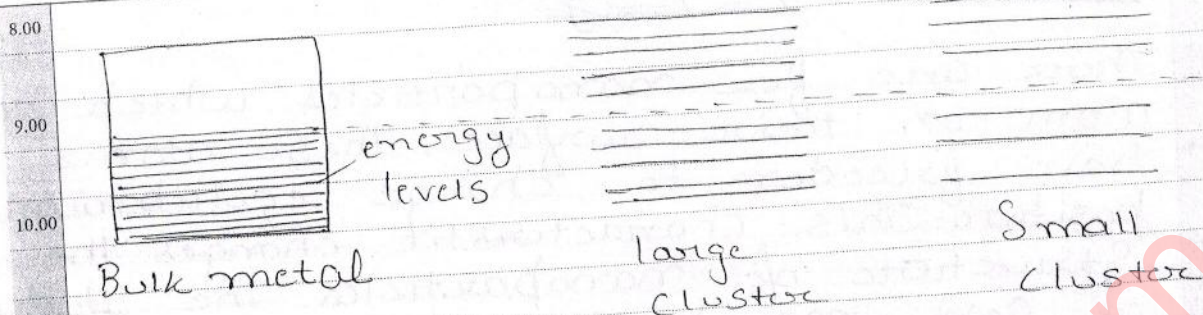 8.00
9.00
10.00
energy
levels
Bulk metal
large
cluster
Small
cluster